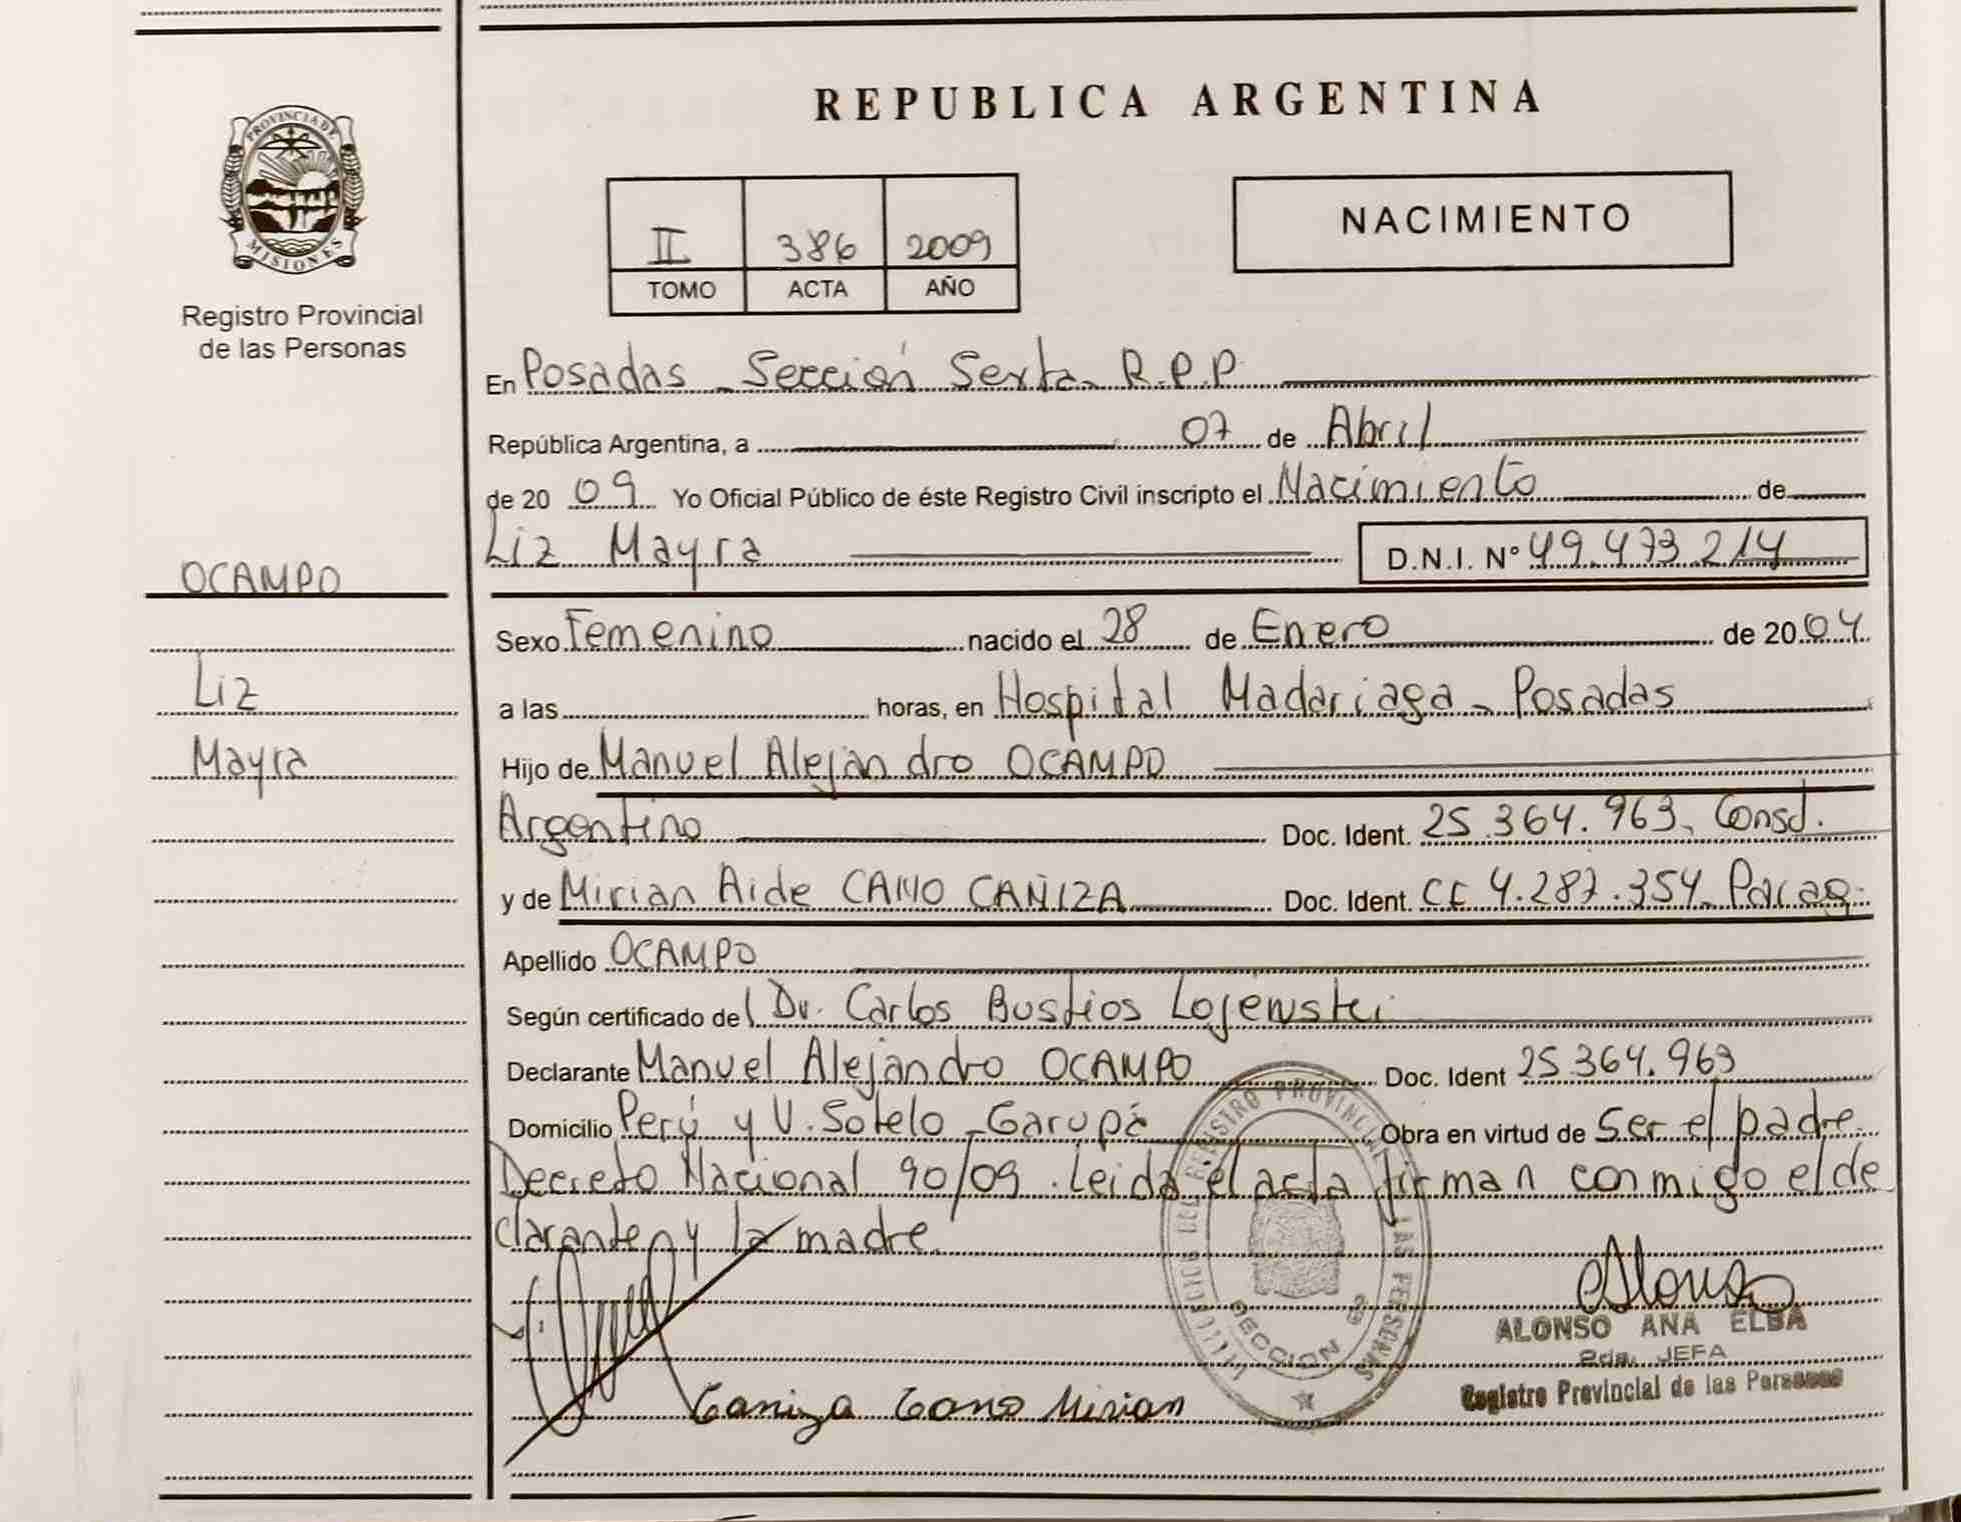 REPUBLICA ARGENTINA
PROVINCIA DE
MISIONES
Registro Provincial
de las Personas
II 386 2009
TOMO ACTA AÑO
NACIMIENTO
En Posadas - Sección Sexta - R.P.P
República Argentina, a 07 de Abril
de 2009 Yo Oficial Público de éste Registro Civil inscripto el Nacimiento de
Liz Mayra D.N.I. Nº 49.473.214
OCAMPO
Liz
Mayra
Sexo Femenino nacido el 28 de Enero de 2004
a las horas, en Hospital Madariaga - Posadas
Hijo de Manuel Alejandro OCAMPO
Argentino Doc. Ident. 25.364.963. Consd.
y de Mirian Aide CANO CAÑIZA Doc. Ident. CC 4.287.354. Parag.
Apellido OCAMPO
Según certificado del Dr. Carlos Bustios
Declarante Manuel Alejandro OCAMPO Doc. Ident 25.364.963
Domicilio Perú y V. Sotelo - Garupá Obra en virtud de Ser el padre.
Decreto Nacional 90/09. Leida el acta firman conmigo el de
clarante y la madre.
REGISTRO PROVINCIAL LAS PERSONAS
SECCION 6ª
Alonso
ALONSO ANA ELBA
2da. JEFA
Registro Provincial de las Personas
Caniza Cano Mirian